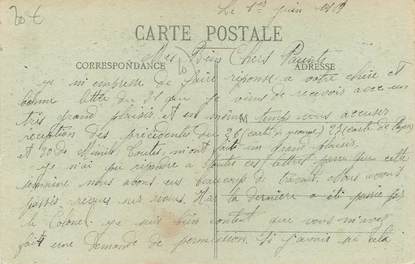 20 €
Le 1er juin 1919
CARTE POSTALE
CORRESPONDANCE
ADRESSE
Mes Biens Chers Parents
je m'empresse de faire réponse a votre chère et
bonne lettre du 28 que je viens de recevois avec un
très grand plaisir, et en même temps vous accuser
reception des précédentes du 26 (carte
et 20 de Minie toutes m'ont fait un grand plaisir.
je n'ai pu répondre a toutes ces lettres parce que cette
semaine nous avons eu beaucoup de travail. Alors avons
passés revues sur revues. la dernière a été passée par
le Colonel. je suis bien content que vous m'avez
fait une demande de permission. Si j'avais